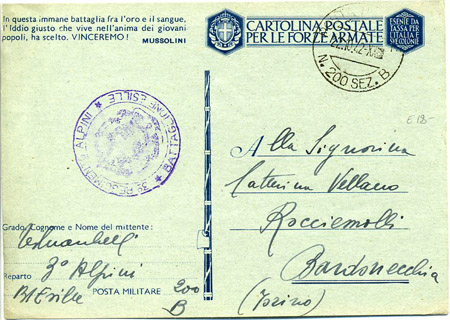 In questa immane battaglia fra l'oro e il sangue,
l'Iddio giusto che vive nell'anima dei giovani
popoli, ha scelto. VINCEREMO!
MUSSOLINI
CARTOLINA POSTALE
PER LE FORZE ARMATE
ESENTE DA
TASSA PER
L'ITALIA E
SUE COLONIE
N. 200 SEZ. B
3º REGGIMENTO ALPINI
BATTAGLIONE ESILLE
€ 18-
Alla Signorina
Catterina Vellano
Rocciemolli
Bardonecchia
(Torino)
Grado Cognome e Nome del mittente:
3º Alpini
Reparto
Btg Esille
POSTA MILITARE 200
B